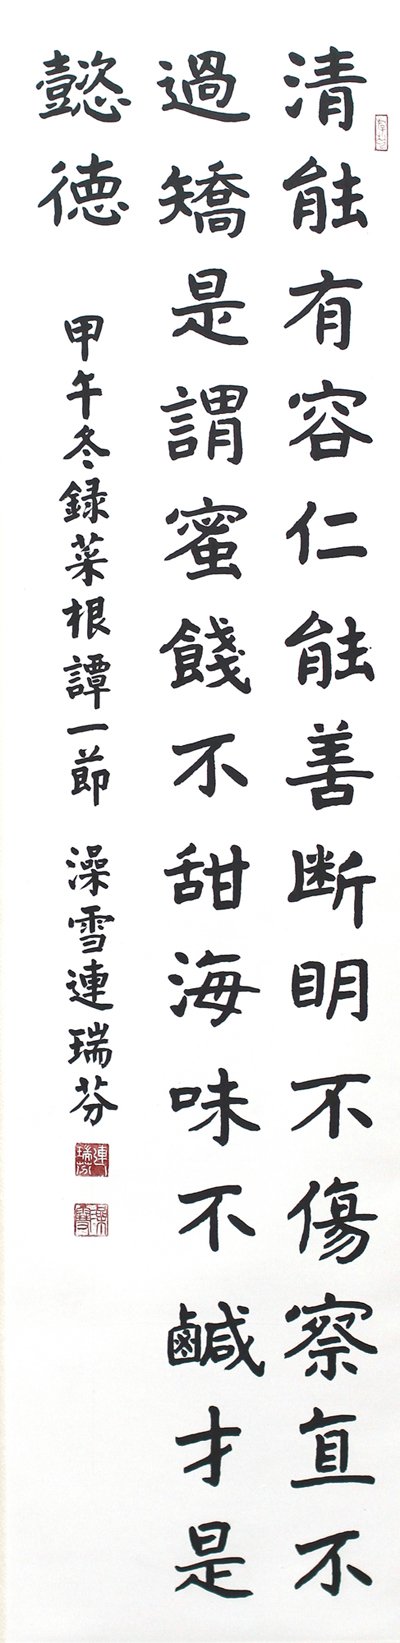 清能有容仁能善断明不傷察直不
過矯是謂蜜餞不甜海味不鹹才是
懿德
甲午冬録菜根譚一節 澡雪連瑞芬
連瑞芬
澡雪